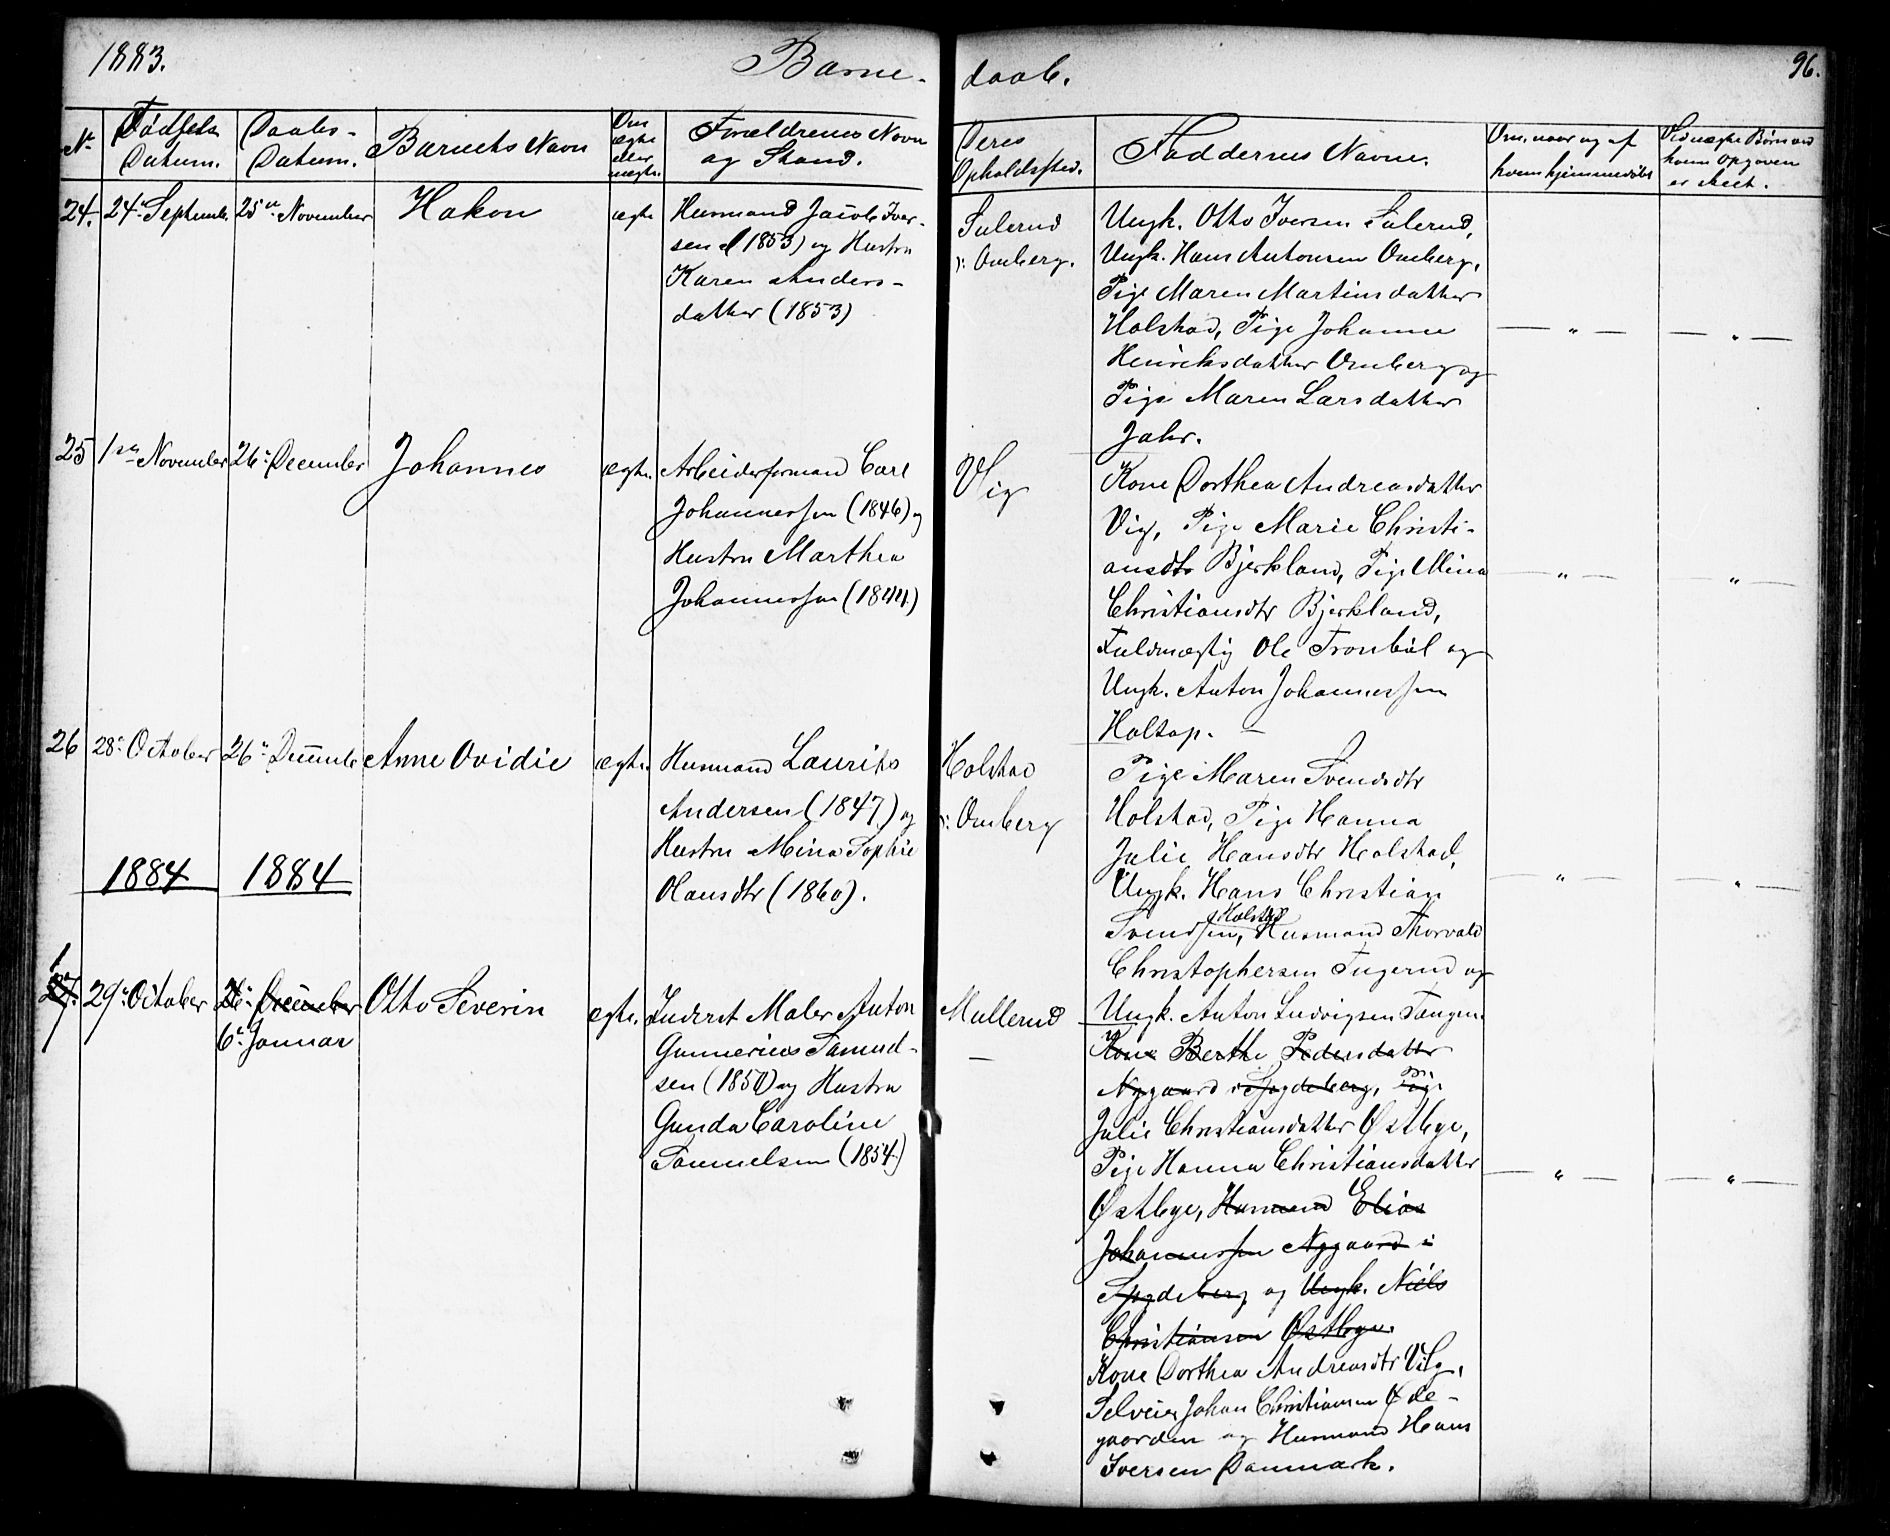 1883. Barne-daab. 96.
No Fødsels Datum. Daabs-Datum. Barnets Navn Om ægte eller uægte. Forældrenes Navn og Stand. Deres Opholdssted. Faddernes Navne. Om, naar og af hvem hjemmedøbt Ved uægte Børn ved hvem Opgaven er skeet.
24. 24de Septembr. 25de November Hakon ægte
Husmand Jacob Iver-
sen (1853) og Hustru
Karen Anders-
datter (1853)
Sulerud
i: Omberg.
Ungk. Otto Iversen Sulerud,
Ungk. Hans Antonsen Omberg,
Pige Maren Martinsdatter
Holstad, Pige Johanne
Henriksdatter Omberg og
Pige Maren Larsdatter
Jahr.
— „ — — „ —
25 1ste November 26de December Johannes ægte.
Arbeiderformand Carl
Johannessen (1846) og
Hustru Marthea
Johannessen (1844)
Vig
Kone Dorthea Andreasdatter
Vig, Pige Marie Christi-
ansdtr Bjerkland, Pige Mina
Christiansdtr Bjerkland,
Fuldmægtig Ole Tronbøl og
Ungk. Anton Johannessen
Holtop. —
— „ — — „ —
26 28de October 26de Decembr Anne Ovidie ægte.
Husmand Laurits
Andersen (1847) og
Hustru Mina Sophie
Olausdtr (1860).
Holstad
i: Omberg
Pige Maren Svendsdtr
Holstad, Pige Hanna
Julie Hansdtr Holstad,
Ungk. Hans Christian
Svendsen, Holstad Husmand Thorvald
Christophersen Tugerud og
Ungk. Anton Ludvigsen Tangen.
— „ — — „ —
1884 1884
1
27. 29de October 26de December Otto Severin ægte.
6te Januar
Inderst Maler Anton
Gunnerius Samuel-
sen (1850) og Hustru
Gunda Caroline
Samuelsen (1854)
Mullerud
—
Kone Berthe Pedersdatter
Nygaard i Spydeberg, Pige
Julie Christiansdatter Østbye,
Pige Hanna Christiansdatter
Østbye, Husmand Elias
Johannessen Nygaard i
Spydeberg og Ungk. Niels
Christiansen Østbye.
Kone Dorthea Andreasdtr Vig,
Selveier Johan Christiansen Øde-
gaarden og Husmand Hans
Iversen Danmark.
— „ — — „ —